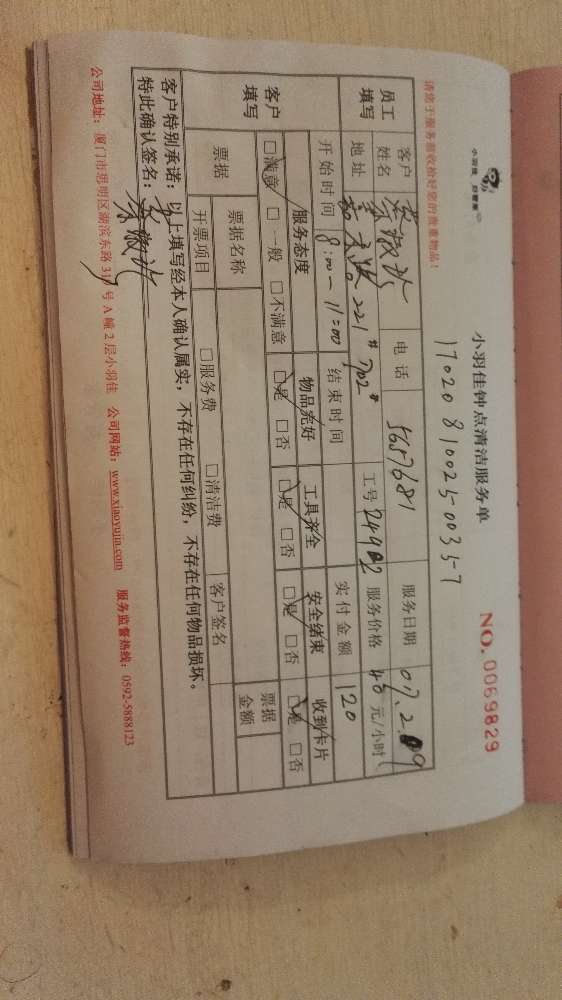 小羽佳 好管家
小羽佳钟点清洁服务单
NO. 0069829
17020810025 00357
请您于服务前收检好您的贵重物品！
员工填写 客户姓名 电话 5657681 服务日期 07.2.09
地址 221# 702# 工号 24902 服务价格 40 元/小时
开始时间 8:00-11:00 结束时间 实付金额 120
客户填写 服务态度 物品完好 工具齐全 安全结束 收到卡片
□满意 □一般 □不满意 □是 □否 □是 □否 □是 □否 □是 □否
票据 票据名称 客户签名 票据金额
开票项目 □服务费 □清洁费
客户特别承诺：以上填写经本人确认属实，不存在任何纠纷，不存在任何物品损坏。
特此确认签名：
公司地址：厦门市思明区湖滨东路 319 号 A 幢 2 层小羽佳 公司网站：www.xiaoyujia.com 服务监督热线：0592-5888123